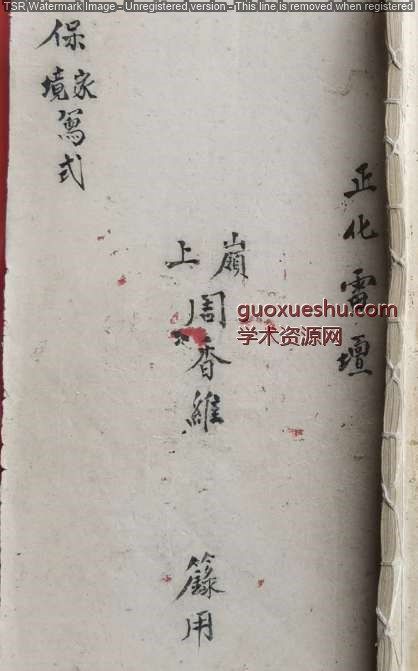 TSR Watermark Image - Unregistered version - This line is removed when registered
正化雷壇
嶺上
周香維
籙用
保家境寫式
guoxueshu.com
学术资源网